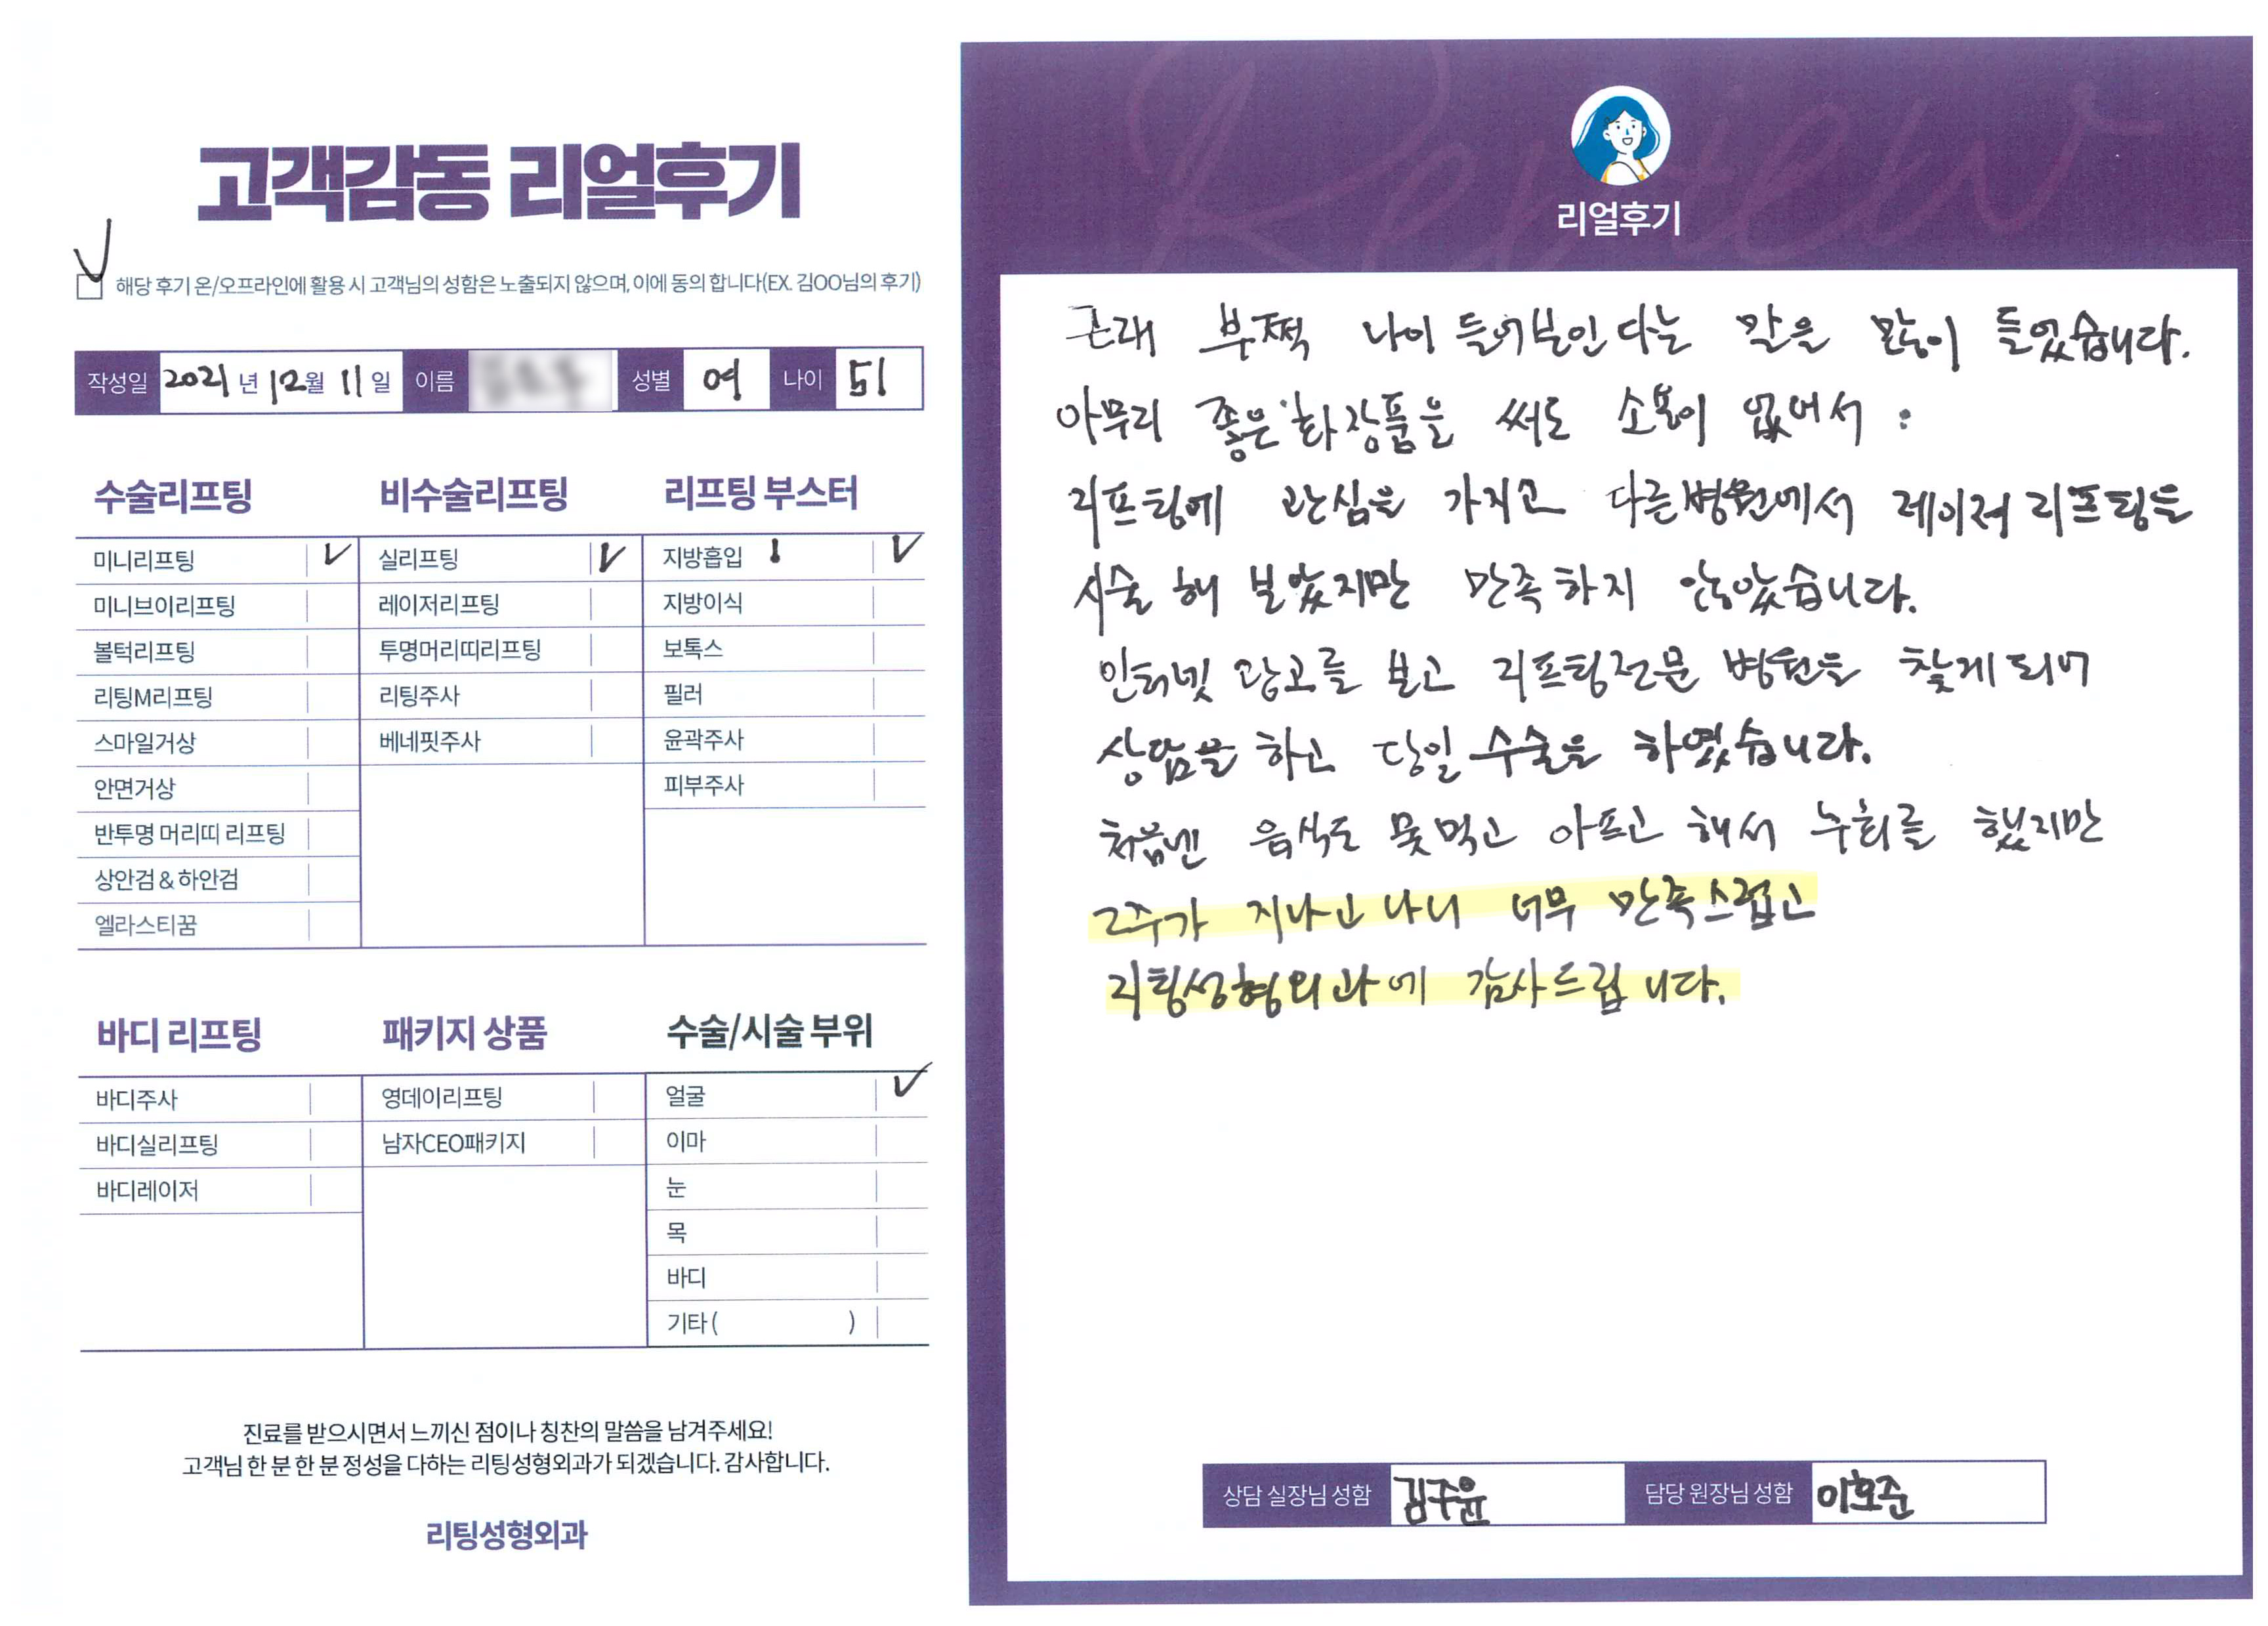 고객감동 리얼후기
해당 후기 온/오프라인에 활용 시 고객님의 성함은 노출되지 않으며, 이에 동의 합니다(EX. 김OO님의 후기)
작성일 2021년 12월 11일 이름 성별 여 나이 51
수술리프팅
미니리프팅
미니브이리프팅
볼턱리프팅
리팅M리프팅
스마일거상
안면거상
반투명 머리띠 리프팅
상안검 & 하안검
엘라스티꿈
비수술리프팅
실리프팅
레이저리프팅
투명머리띠리프팅
리팅주사
베네핏주사
리프팅 부스터
지방흡입
지방이식
보톡스
필러
윤곽주사
피부주사
바디 리프팅
바디주사
바디실리프팅
바디레이저
패키지 상품
영데이리프팅
남자CEO패키지
수술/시술 부위
얼굴
이마
눈
목
바디
기타( )
진료를 받으시면서 느끼신 점이나 칭찬의 말씀을 남겨주세요!
고객님 한 분 한 분 정성을 다하는 리팅성형외과가 되겠습니다. 감사합니다.
리팅성형외과
Review
리얼후기
근래 부쩍 나이 들어보인다는 말을 많이 들었습니다.
아무리 좋은 화장품을 써도 소용이 없어서
리프팅에 관심을 가지고 다른병원에서 레이저 리프팅을
시술 해 보았지만 만족하지 않았습니다.
인터넷 광고를 보고 리프팅전문 병원을 찾게되어
상담을 하고 당일 수술을 하였습니다.
처음엔 음식도 못먹고 아프고 해서 후회를 했지만
2주가 지나고 나니 너무 만족스럽고
리팅성형외과에 감사드립니다.
상담 실장님 성함 김주윤 담당 원장님 성함 이호준